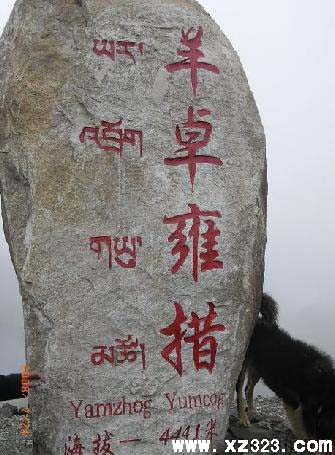 ཡར།
འབྲོག
གཡུ།
མཚོ།
羊卓雍措
Yamzhog Yumcog
海拔一 4441米
www.xz323.com